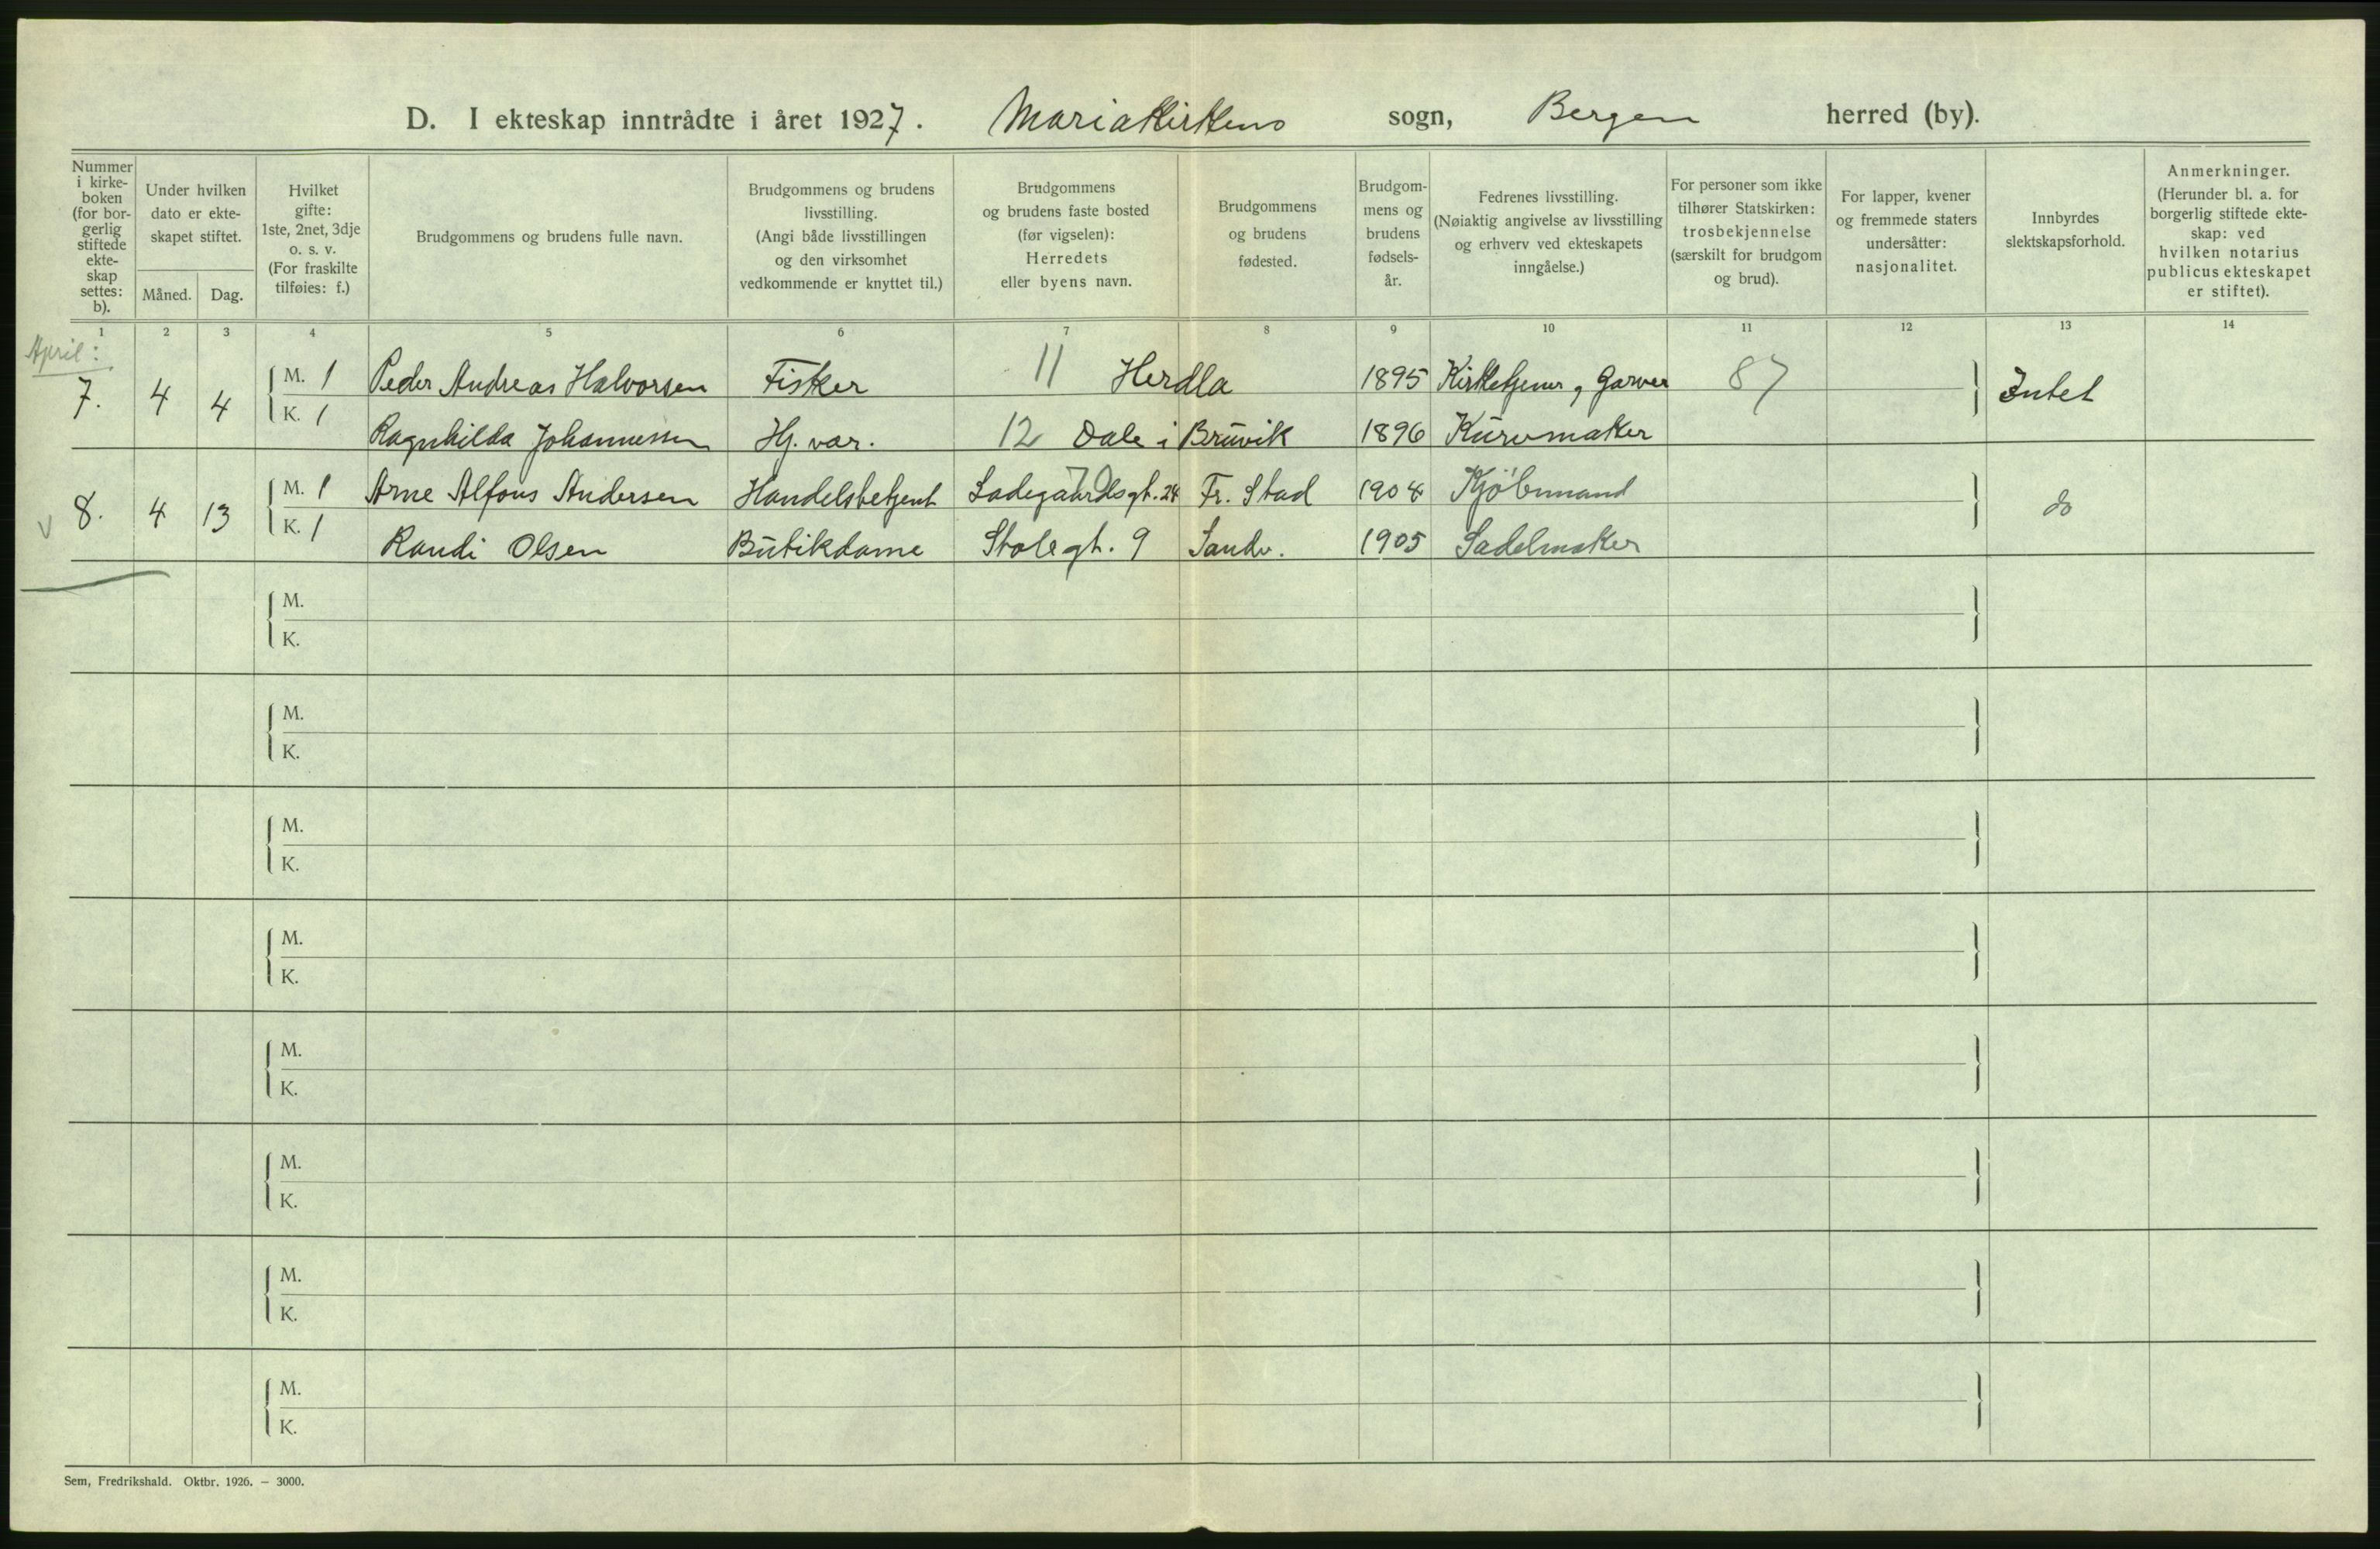 D. I ekteskap inntrådte i året 1927. Mariakirkens sogn, Bergen herred (by).
Nummer i kirke-boken (for bor-gerlig stiftede ekte-skap settes: b).
Under hvilken dato er ekte-skapet stiftet.
Måned. Dag.
Hvilket gifte: 1ste, 2net, 3dje o. s. v. (For fraskilte tilføies: f.)
Brudgommens og brudens fulle navn.
Brudgommens og brudens livsstilling. (Angi både livsstillingen og den virksomhet vedkommende er knyttet til.)
Brudgommens og brudens faste bosted (før vigselen): Herredets eller byens navn.
Brudgommens og brudens fødested.
Brudgom-mens og brudens fødsels-år.
Fedrenes livsstilling. (Nøiaktig angivelse av livsstilling og erhverv ved ekteskapets inngåelse.)
For personer som ikke tilhører Statskirken: trosbekjennelse (særskilt for brudgom og brud).
For lapper, kvener og fremmede staters undersåtter: nasjonalitet.
Innbyrdes slektskapsforhold.
Anmerkninger. (Herunder bl. a. for borgerlig stiftede ekte-skap: ved hvilken notarius publicus ekteskapet er stiftet).
1 2 3 4 5 6 7 8 9 10 11 12 13 14
April:
7. 4 4 M. 1 Peder Andreas Halvorsen Fisker 11 Herdla 1895 Kirketjener, Garver 87 Intet
K. 1 Ragnhilda Johannessen Hj. vær. 12 Dale i Bruvik 1896 Kurvmaker
v 8. 4 13 M. 1 Arne Alfons Andersen Handelsbetjent Ladegaardsgt. 24 Fr. Stad 1904 Kjöbmand do
K. 1 Randi Olsen Butikdame Stolegt. 9 Sandv. 1905 Sadelmaker
M.
K.
M.
K.
M.
K.
M.
K.
M.
K.
M.
K.
M.
K.
M.
K.
Sem, Fredrikshald. Oktbr. 1926. — 3000.